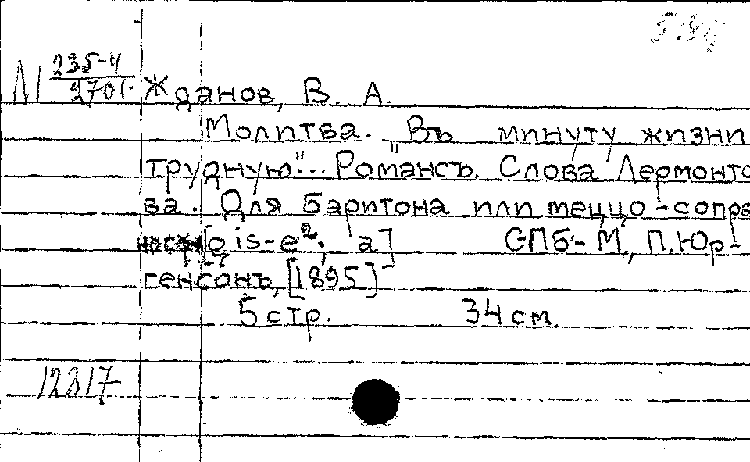 М 235-4
2701
Жданов, В. А.
Молитва. "Въ минуту жизни
трудную"... Романсъ. Слова Лермонто
ва. Для баритона или меццо-сопра
[cis-e²; a] СПб-М., П. Юр-
генсонъ, [1895]
5 стр. 34 см.
12817